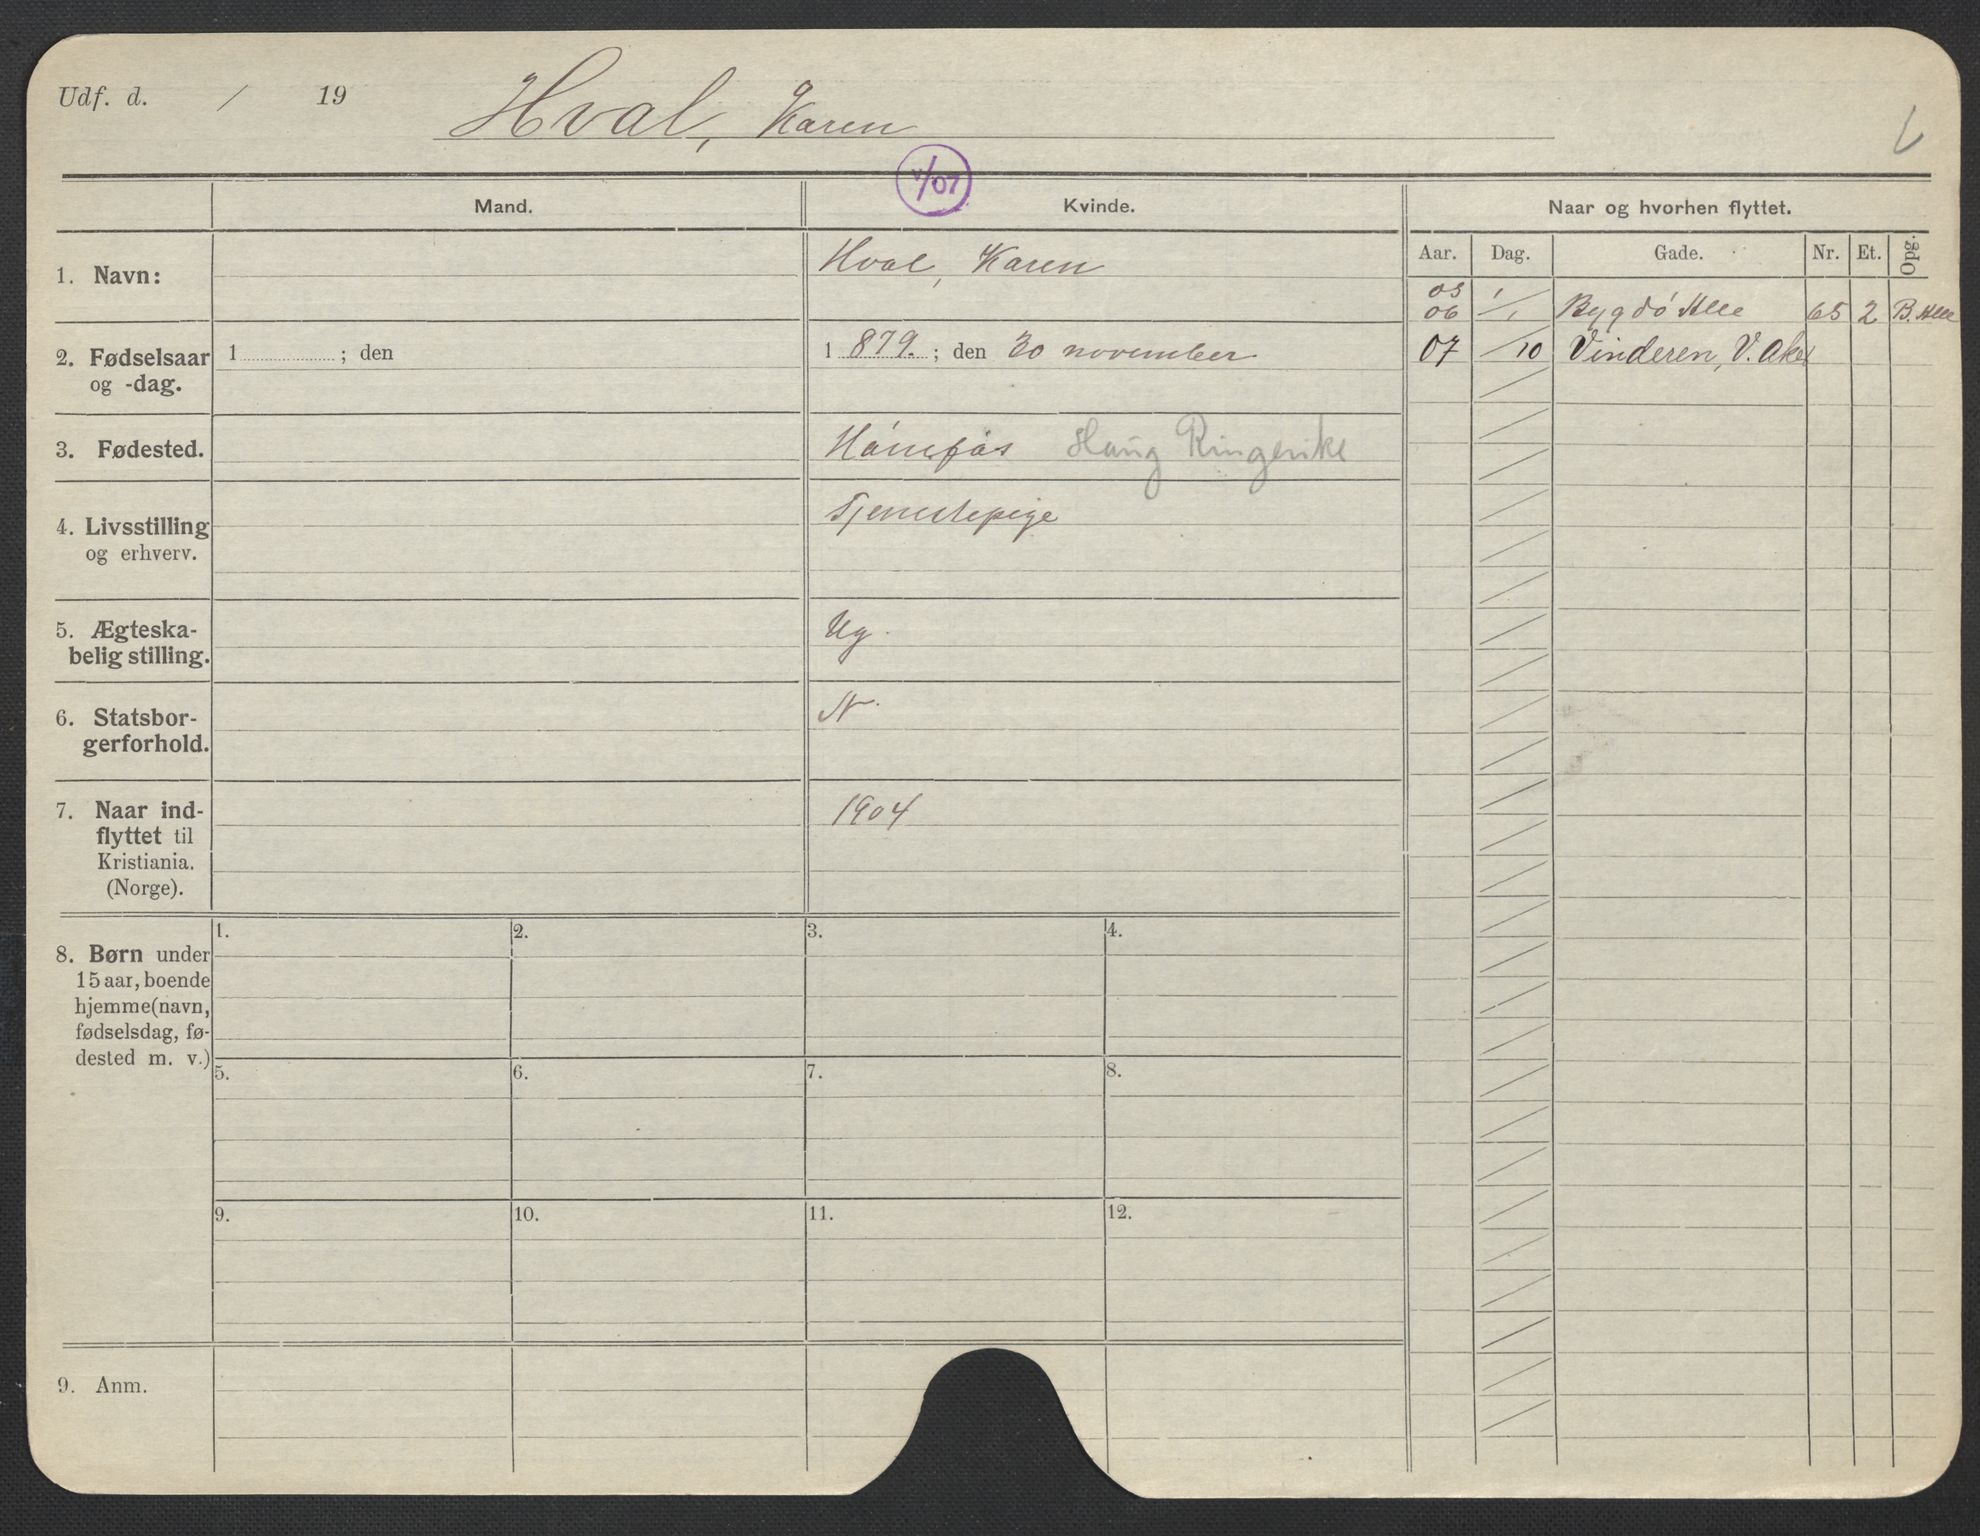 Udf. d. / 19 Hval, Karen
V/07
Mand. Kvinde. Naar og hvorhen flyttet.
Aar. Dag. Gade. Nr. Et. Opg.
1. Navn: Hval, Karen
05 1/
06 /1 Bygdö Alle 65 2 B. Alle
2. Fødselsaar og -dag. 1 ; den 1 879. ; den 30 november
07 /10 Vinderen, V. Aker
3. Fødested. Hönefos Haug Ringerike
4. Livsstilling og erhverv. Tjenestepige
5. Ægteska-
belig stilling. Ug.
6. Statsbor-
gerforhold. N.
7. Naar ind-
flyttet til
Kristiania.
(Norge). 1904
8. Børn under
15 aar, boende
hjemme (navn,
fødselsdag, fø-
dested m. v.)
1. 2. 3. 4.
5. 6. 7. 8.
9. 10. 11. 12.
9. Anm.